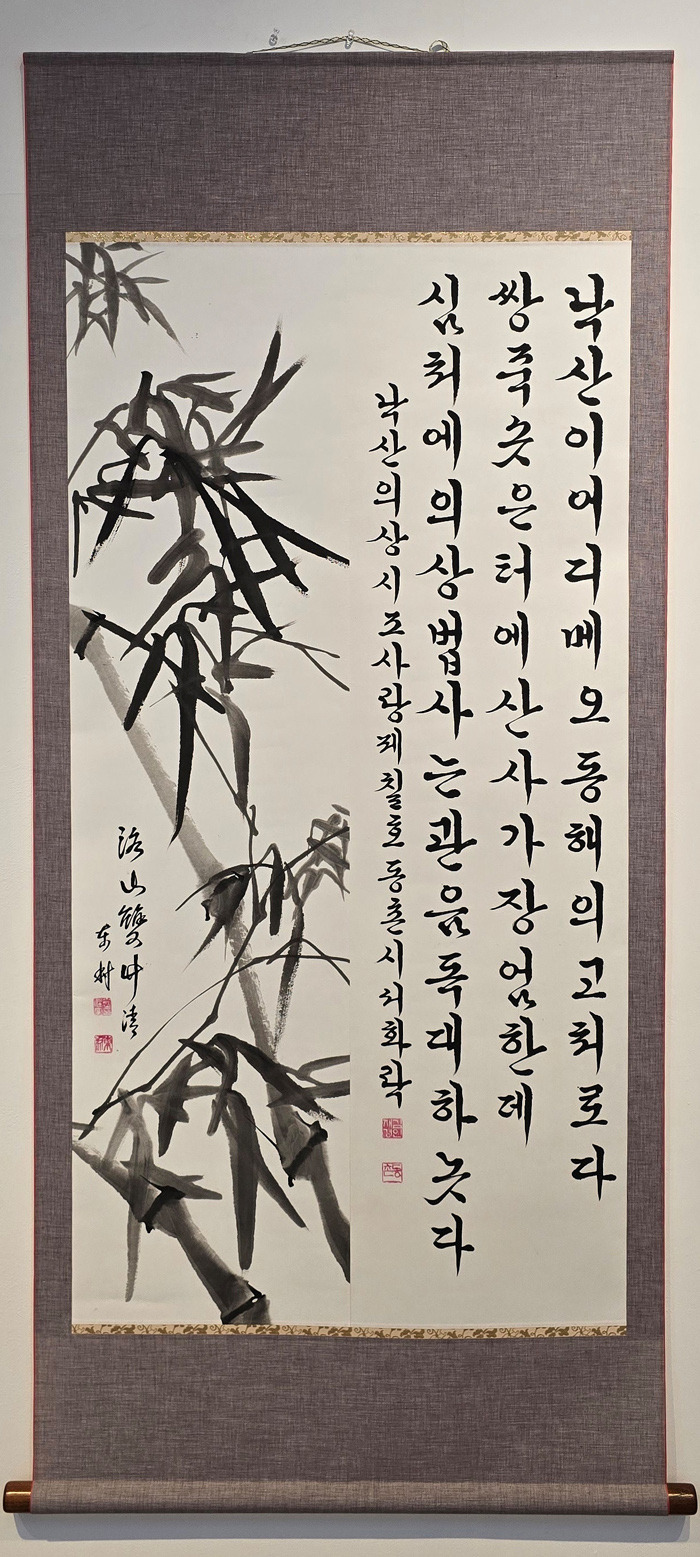 낙산이어디메오동해의고처로다
쌍죽솟은터에산사가장엄한데
심처에의상법사는관음독대하놋다
낙산의상시조사랑제칠호동촌시서화락
洛山雙竹清
東村